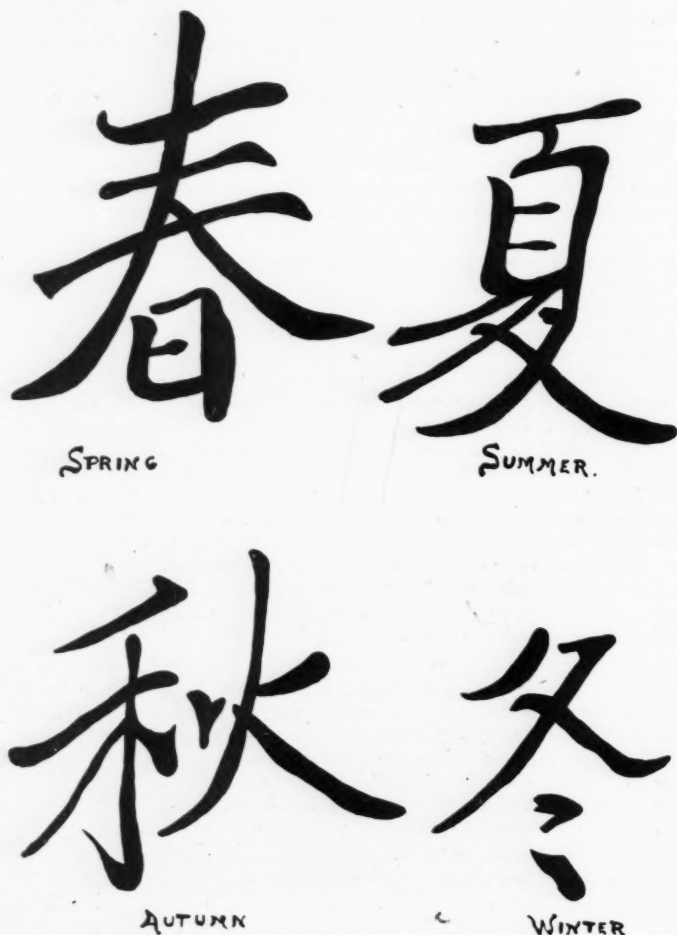 春 夏
SPRING SUMMER.
秋 冬
AUTUMN WINTER